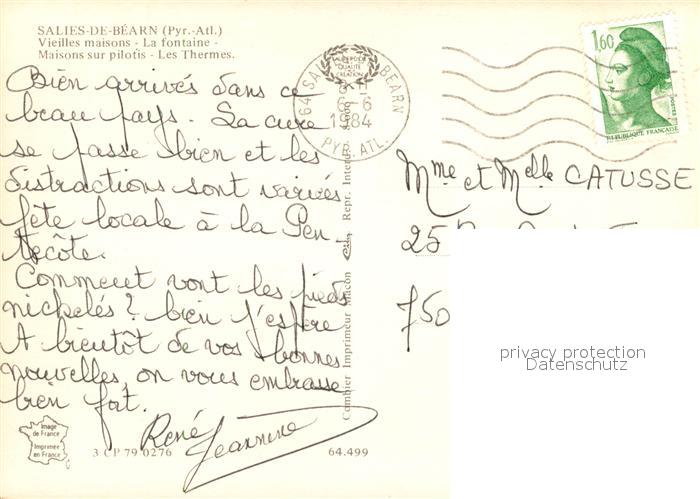 SALIES-DE-BÉARN (Pyr.-Atl.)
Vieilles maisons - La fontaine -
Maisons sur pilotis - Les Thermes.
Bien arrivés dans ce
beau pays. La cure
se passe bien et les
distractions sont variées
fête locale à la Pen_
tecôte.
Comment vont les pieds
nickelés? bien j'espère
A bientôt de vos bonnes
nouvelles, on vous embrasse
bien fort.
René Jeannine
Image
de France
Imprimée
en France
3 CP 79 0276
64.499
Combier Imprimeur Mâcon
Repr. Interdite
64 SALIES BÉARN
6-6
1984
PYR. ATL.
QUALITÉ
CRÉATION
1,60
RÉPUBLIQUE FRANÇAISE
Mme et Melle CATUSSE
25
750
privacy protection
Datenschutz